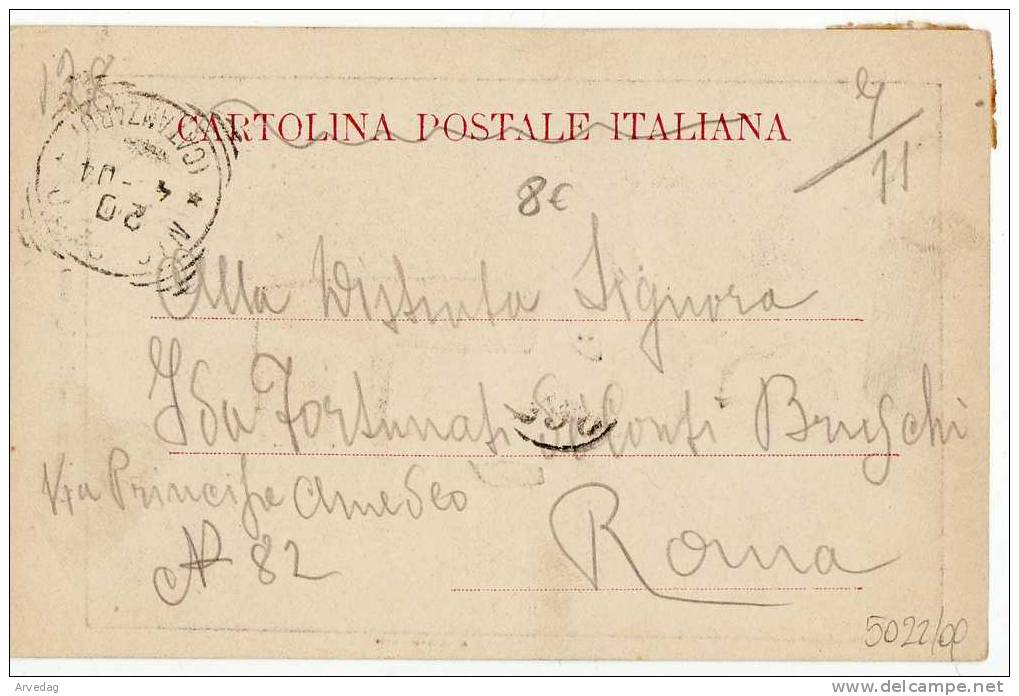 128
CARTOLINA POSTALE ITALIANA
(CATANZARO)
20
4 - 04
8€
Alla Distinta Signora
Ida Fortunati Conti Bruschi
Via Principe Amedeo
N 82
Roma
5022/00
Arvedag
delcampe.net